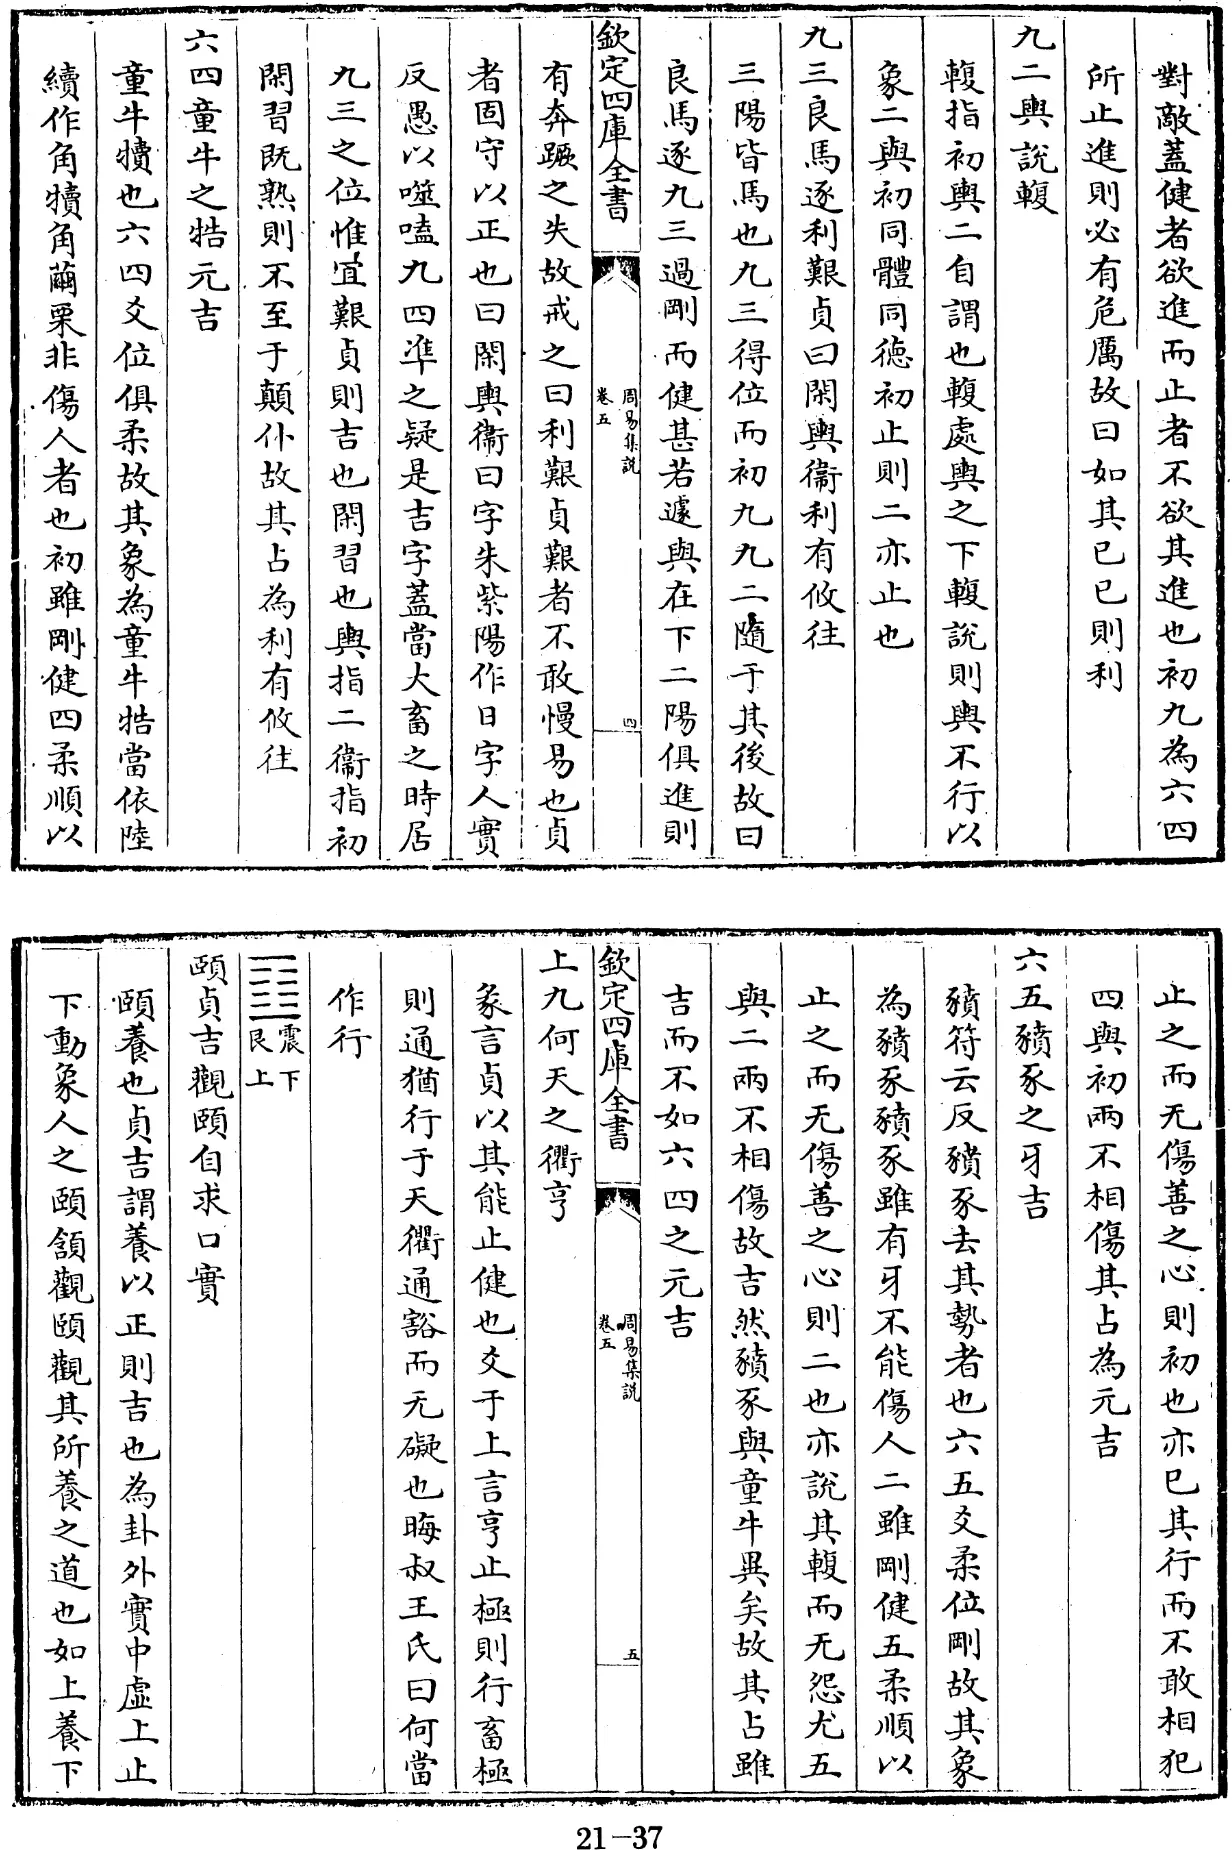 對敵蓋健者欲進而止者不欲其進也初九為六四
所止進則必有危厲故曰如其已已則利
九二輿說輹
輹指初輿二自謂也輹處輿之下輹說則輿不行以
象二與初同體同德初止則二亦止也
九三良馬逐利艱貞曰閑輿衞利有攸往
三陽皆馬也九三得位而初九九二隨于其後故曰
良馬逐九三過剛而健甚若遽與在下二陽俱進則
欽定四庫全書
周易集說
卷五
四
有奔蹶之失故戒之曰利艱貞艱者不敢慢易也貞
者固守以正也曰閑輿衞曰字朱紫陽作日字人實
反愚以噬嗑九四凖之疑是吉字蓋當大畜之時居
九三之位惟宜艱貞則吉也閑習也輿指二衞指初
閑習既熟則不至于顛仆故其占為利有攸往
六四童牛之牿元吉
童牛犢也六四爻位俱柔故其象為童牛牿當依陸
續作角犢角繭栗非傷人者也初雖剛健四柔順以
止之而无傷善之心則初也亦已其行而不敢相犯
四與初兩不相傷其占為元吉
六五豶豕之牙吉
豶符云反豶豕去其勢者也六五爻柔位剛故其象
為豶豕豶豕雖有牙不能傷人二雖剛健五柔順以
止之而无傷善之心則二也亦說其輹而无怨尤五
與二兩不相傷故吉然豶豕與童牛異矣故其占雖
吉而不如六四之元吉
欽定四庫全書
周易集說
卷五
五
上九何天之衢亨
彖言貞以其能止健也爻于上言亨止極則行畜極
則通猶行于天衢通豁而无礙也晦叔王氏曰何當
作行
震下
艮上
頤貞吉觀頤自求口實
頤養也貞吉謂養以正則吉也為卦外實中虛上止
下動象人之頤頷觀頤觀其所養之道也如上養下
21-37